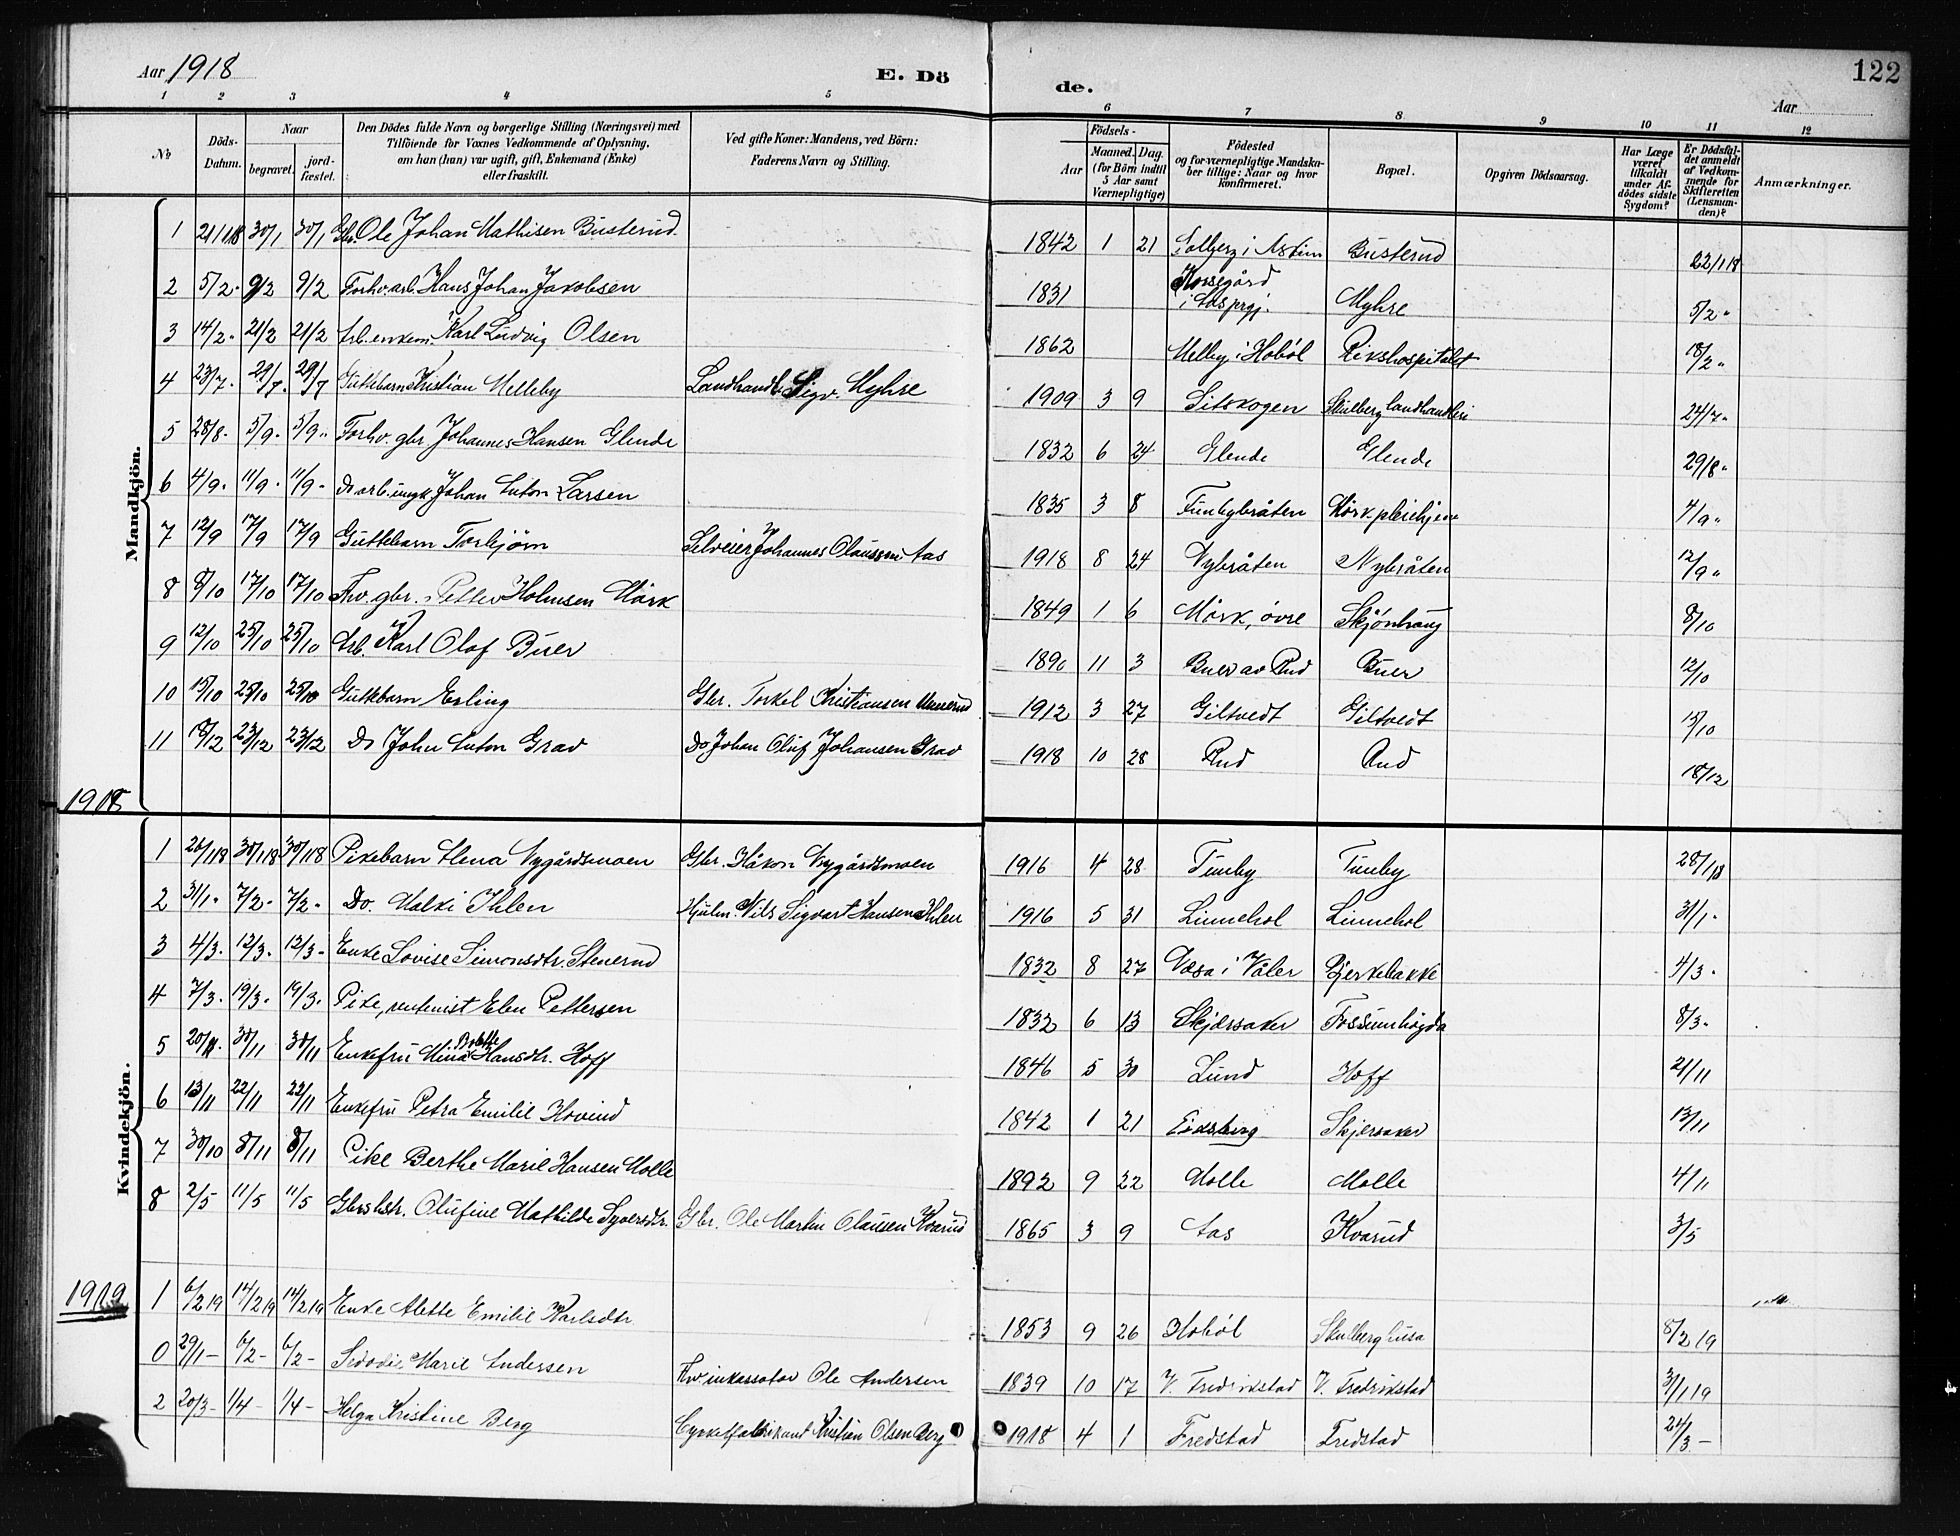 Aar 1918
E. Dö
de.
122
Aar
1 2 3 4 5 6 7 8 9 10 11 12
No
Döds-Datum.
Naar
begravet.
jord-fæstet.
Den Dödes fulde Navn og borgerlige Stilling (Næringsvei) med
Tilföiende for Voxnes Vedkommende af Oplysning,
om han (hun) var ugift, gift, Enkemand (Enke)
eller fraskilt.
Ved gifte Koner: Mandens, ved Börn:
Faderens Navn og Stilling.
Födsels-
Aar
Maaned. Dag.
(for Börn indtil
5 Aar samt
Værnepligtige)
Födested
og for værnepligtige Mandska-
ber tillige: Naar og hvor
konfirmeret.
Bopæl.
Opgiven Dödsaarsag.
Har Læge
været
tilkaldt
under Af-
dödes sidste
Sygdom?
Er Dödsfal-
det anmeldt
af Vedkom-
mende for
Skifteretten
(Lensman-
den)?
Anmærkninger.
Mandkjön.
1 21/1 18 30/1 30/1 Gbr. Ole Johan Mathisen Busterud 1842 1 21 Solberg i Askim Busterud 22/1 18
2 5/2. 9/2 9/2 Forhv. arb. Hans Johan Jakobsen 1831 Korsegård i Aas prgj. Myhre 5/2 "
3 14/2. 21/2 21/2 Arb. enkem. Karl Ludvig Olsen 1862 Melby i Hobøl Rikshospitalet 18/2 "
4 23/7. 29/7. 29/7 Guttebarn Kristian Melleby Landhandl. Sigv. Myhre 1909 3 9 Sitskogen Skulberg landhandleri 24/7.
5 28/8. 5/9. 5/9. Forhv. gbr. Johannes Hansen Glende 1832 6 24 Glende Glende 29/8.
6 4/9. 11/9. 11/9. Do arb. ungk. Johan Anton Larsen 1835 3 8 Tunbybråten Mörk pleiehjem 4/9 "
7 12/9 17/9 17/9 Guttebarn Torbjörn Selveier Johannes Olaussen Aas 1918 8 24 Nybråten Nybråten 12/9 "
8 8/10 17/10 17/10 Fhv. gbr. Petter Holmsen Mörk 1849 1 6 Mörk, övre Skjönhaug 8/10
9 12/10 25/10 25/10 Arb. Karl Olaf Buer 1890 11 3 Buer av Rud Buer 12/10
10 15/10 25/10 25/10 Guttebarn Erling Gbr. Torkel Kristiansen Unnerud 1912 3 27 Giltvedt Giltvedt 15/10
11 18/12 23/12 23/12 Do John Anton Grav Do Johan Oluf Johansen Grav 1918 10 28 Rud Rud 18/12
1918
Kvindekjön.
1 26/1 18 30/1 18 30/1 18 Pikebarn Alena Nygårdsmoen Gbr. Håkon Nygårdsmoen 1916 4 28 Tunby Tunby 28/1 18
2 31/1. 7/2. 7/2. Do. Malki Ihlen Hjulm. Nils Sigvart Hansen Ihlen 1916 5 31 Linnehol Linnehol 31/1.
3 4/3. 12/3. 12/3. Enke Lovise Simonsdtr. Stenerud 1832 8 27 Vosa i Våler Bjerkebakke 4/3.
4 7/3. 19/3. 19/3. Pike, rentenist Elen Pettersen 1832 6 13 Skjersaker Fossumhögda 8/3.
5 20/11. 30/11 30/11 Enkefru Mina Bolette Hansdtr. Hoff 1846 5 30 Lund Hoff 21/11
6 13/11 22/11 22/11 Enkefru Petra Emilie Hovind 1842 1 21 Eidsberg Skjersaker 13/11
7 30/10 8/11 8/11 Pike Berthe Marie Hansen Molle 1892 9 22 Molle Molle 4/11
8 2/5 11/5 11/5 Gbrshstr. Olufine Mathilde Syversdtr. Gbr. Ole Martin Olausen Kvarud 1865 3 9 Aas Kvarud 3/5
1919
1 6/2 19 14/2 19 14/2 19 Enke Alette Emilie Karlsdtr. 1853 9 26 Hobøl Skulberghusa 8/2 19
0 29/1 – 6/2 – 6/2 – Marie Andersen Fhv. inkassator Ole Andersen 1839 10 17 V. Fredrikstad V. Fredrikstad 31/1 19
2 20/3 – 1/4 – 1/4 – Helga Kristine Berg Kristian Olsen Berg 1918 4 1 Fredstad Fredstad 24/3 –